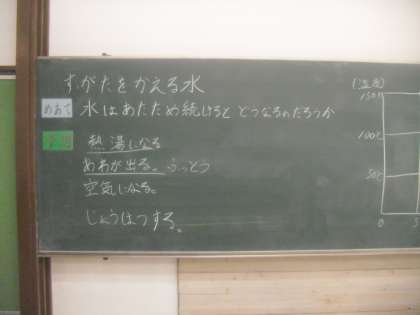 すがたをかえる水
めあて 水はあたため続けるとどうなるのだろうか
熱湯になる
あわが出る。ふっとう
空気になる。
じょうはつする。
(温度)
150℃
100℃
50℃
0 5